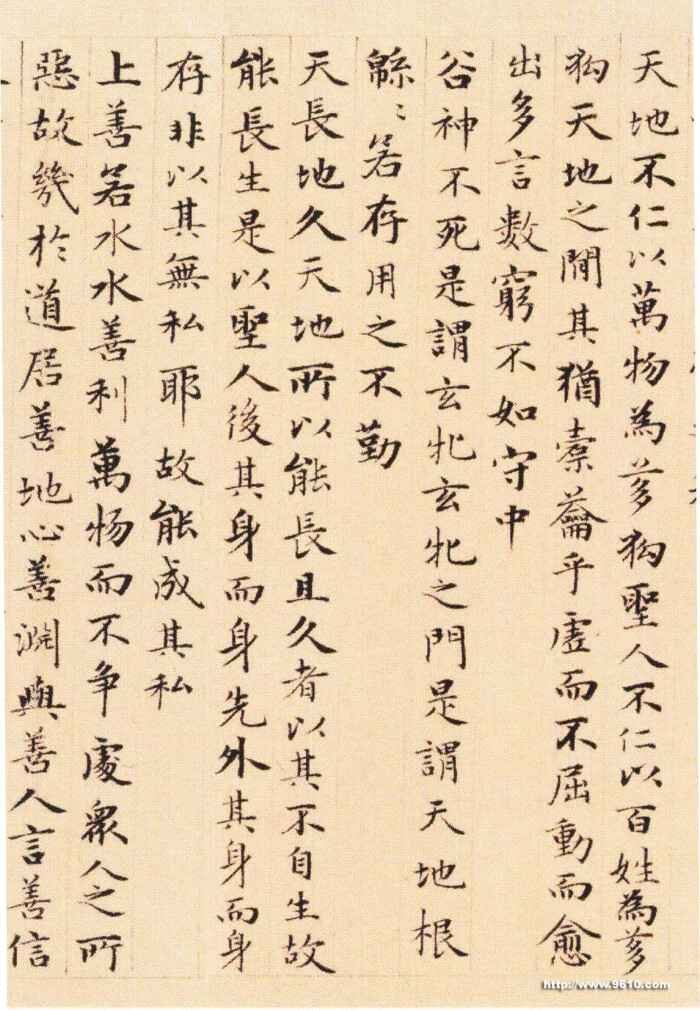 天地不仁以萬物為芻狗聖人不仁以百姓為芻
狗天地之間其猶橐籥乎虛而不屈動而愈
出多言數窮不如守中
谷神不死是謂玄牝玄牝之門是謂天地根
緜〻若存用之不勤
天長地久天地所以能長且久者以其不自生故
能長生是以聖人後其身而身先外其身而身
存非以其無私耶故能成其私
上善若水水善利萬物而不爭處衆人之所
惡故幾於道居善地心善淵與善人言善信
http://www.9610.com